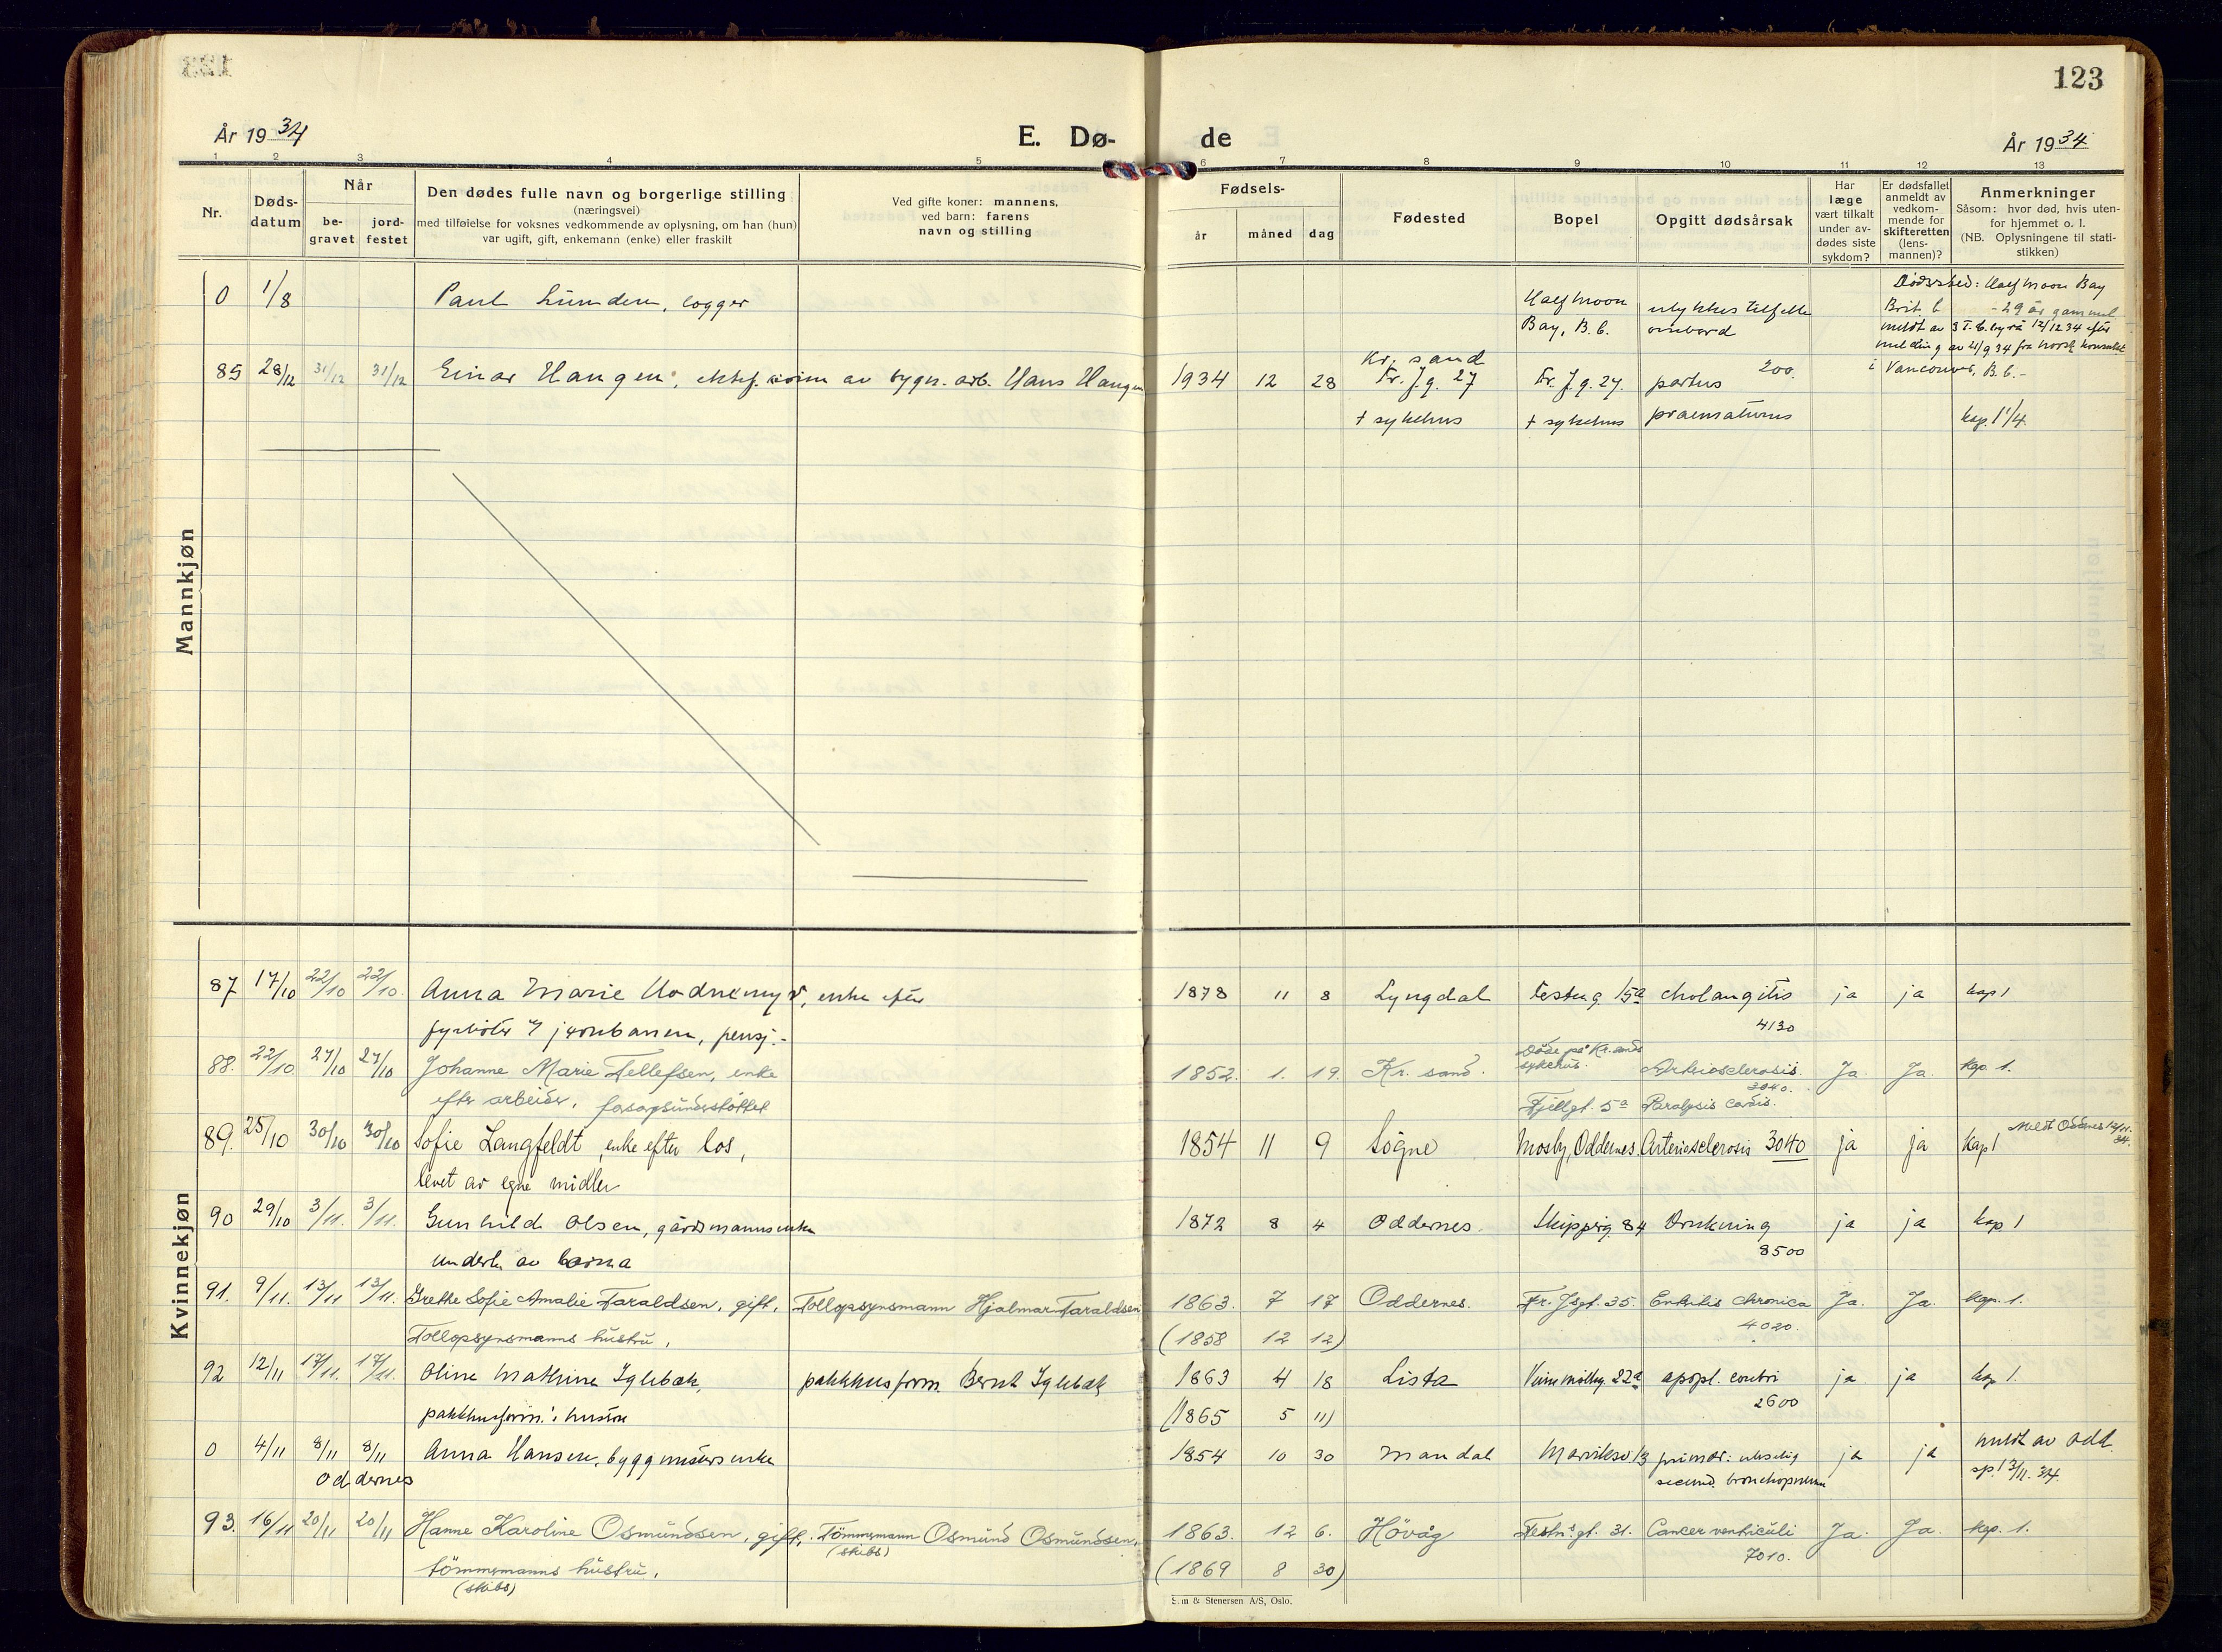 123
År 1934
E. Dø-
de
År 1934
1 2 3 4 5 6 7 8 9 10 11 12 13
Nr.
Døds-
datum
Når
be-
gravet
jord-
festet
Den dødes fulle navn og borgerlige stilling
(næringsvei)
med tilføielse for voksnes vedkommende av oplysning, om han (hun)
var ugift, gift, enkemann (enke) eller fraskilt
Ved gifte koner: mannens,
ved barn: farens
navn og stilling
Fødsels-
år
måned
dag
Fødested
Bopel
Opgitt dødsårsak
Har
læge
vært tilkalt
under av-
dødes siste
sykdom?
Er dødsfallet
anmeldt av
vedkom-
mende for
skifteretten
(lens-
mannen)?
Anmerkninger
Såsom: hvor død, hvis uten-
for hjemmet o. l.
(NB. Oplysningene til stati-
stikken)
Mannkjøn
0 1/8 Paul Lunden, logger Half moon ulykkestilfelle Dødssted: Half moon Bay
Bay, B. C. ombord Brit. C - 29 år gammel
meldt av S. T. C. byrå 12/12 34 efter
melding av 21/9 34 fra norsk konsulat
i Vancouver, B. C. -
85 28/12 31/12 31/12 Einar Haugen, ektef. sønn av bygn. arb. Hans Haugen 1934 12 28 Kr. sand
Fr. J. g. 27 Fr. J. g. 27. partus 200.
+ sykehus + sykehus praematurus kap. 1 1/4
Kvinnekjøn
87 17/10 22/10 22/10 Anna Marie Vodnemyr, enke efter 1878 11 8 Lyngdal Festn g. 15a cholangitis ja ja kap 1
fyrbøter v/ jernbanen, pensj. - 4130
88. 22/10 27/10 27/10 Johanne Marie Tellefsen, enke 1852. 1. 19. Kr. sand. Døde på Kr.sands sykehus. Arteriosclerosis Ja. Ja. Kap. 1.
efter arbeider, forsorgsunderstøttet Fjellgt. 5a 3040. Paralysis cordis.
89. 25/10 30/10 30/10 Sofie Langfeldt, enke efter los, 1854 11 9 Søgne Mosby, Oddernes. Arteriosclerosis 3040 ja ja Kap 1 Meldt Oddnes 12/11. 34.
levet av egne midler
90 29/10 3/11. 3/11. Gunhild Olsen, gårdsmannsenke 1872 8 4 Oddernes. Skipperg. 84 Drukning ja ja kap 1
underh. av barna 8500
91. 9/11. 13/11 13/11. Grethe Sofie Amalie Taraldsen, gift, Tollopsynsmann Hjalmar Taraldsen 1863. 7 17 Oddernes. Fr. Jsgt. 35. Enteritis chronica Ja. Ja. kap. 1.
Tollopsynsmanns hustru, (1858 12 12) 4020.
92 12/11 17/11. 17/11. Oline Mathine Iglebæk, pakkhusform. Bernt Iglebæk 1863 4 18 Lista 22a apopl. cerebri ja ja kap 1.
pakkhusform.'s hustru (1865 5 11) 2600
0 4/11 8/11 8/11 Anna Hansen, byggmesters enke 1854 10 30 Mandal 13 primær: secund. bronchopneum ja ja meldt av Odd.
Oddernes sp. 13/11. 34.
93. 16/11 20/11 20/11 Hanne Karoline Osmundsen, gift. Tømmermann Osmund Osmundsen, 1863. 12 6. Høvåg Festn.sgt. 31. Cancer ventriculi Ja. Ja. kap. 1.
(skibs)
tømmermanns hustru, (1869 8 30) 7010.
(skibs)
& Stenersen A/S, Oslo.